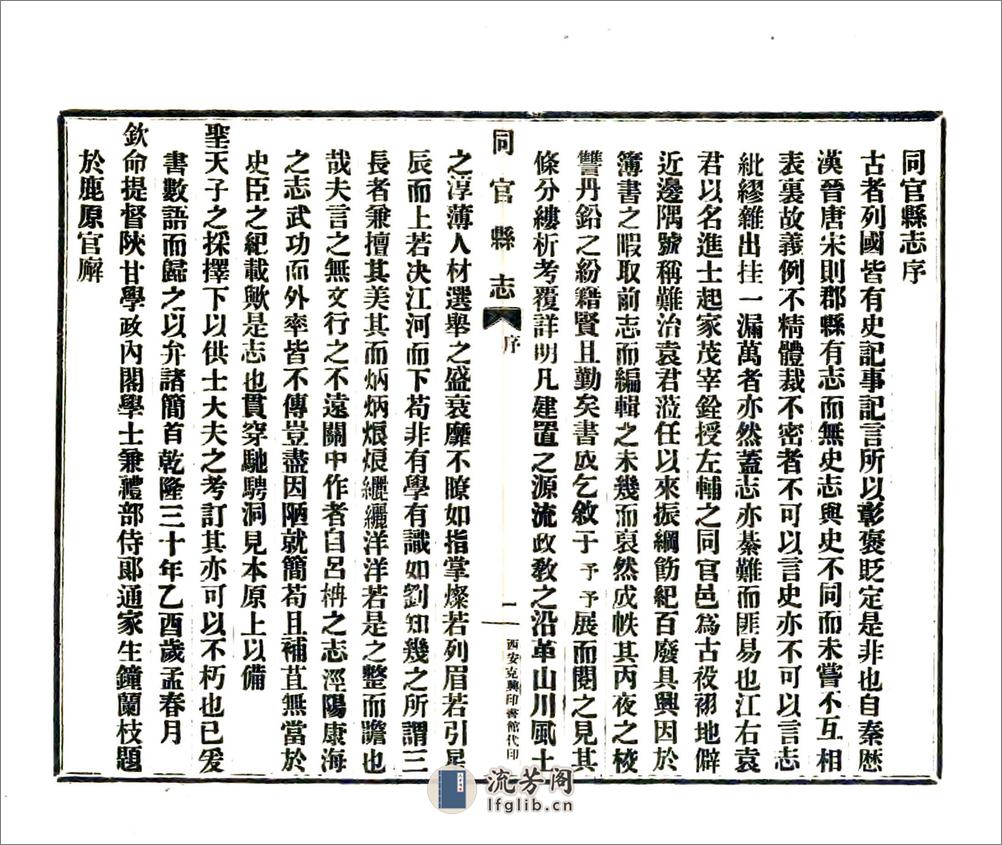 同官縣志序
古者列國皆有史記事記言所以彰褒貶定是非也自秦歷
漢晉唐宋則郡縣有志而無史志與史不同而未嘗不互相
表裏故義例不精體裁不密者不可以言史亦不可以言志
紕繆雜出挂一漏萬者亦然蓋志亦綦難而匪易也江右袁
君以名進士起家茂宰銓授左輔之同官邑為古祋祤地僻
近邊隅號稱難治袁君蒞任以來振綱飭紀百廢具興因於
簿書之暇取前志而編輯之未幾而裒然成帙其丙夜之校
讐丹鉛之紛籍賢且勤矣書成乞敘于予予展而閱之見其
條分縷析考覈詳明凡建置之源流政教之沿革山川風土
同官縣志
序
一
西安克興印書館代印
之淳薄人材選舉之盛衰靡不瞭如指掌燦若列眉若引星
辰而上若決江河而下苟非有學有識如劉知幾之所謂三
長者兼擅其美其而炳炳烺烺纚纚洋洋若是之整而贍也
哉夫言之無文行之不遠關中作者自呂柟之志涇陽康海
之志武功而外率皆不傳豈盡因陋就簡苟且補苴無當於
史臣之紀載歟是志也貫穿馳騁洞見本原上以備
聖天子之採擇下以供士大夫之考訂其亦可以不朽也已爰
書數語而歸之以弁諸簡首乾隆三十年乙酉歲孟春月
欽命提督陝甘學政內閣學士兼禮部侍郎通家生鐘蘭枝題
於鹿原官廨
流芳阁
lfglib.cn